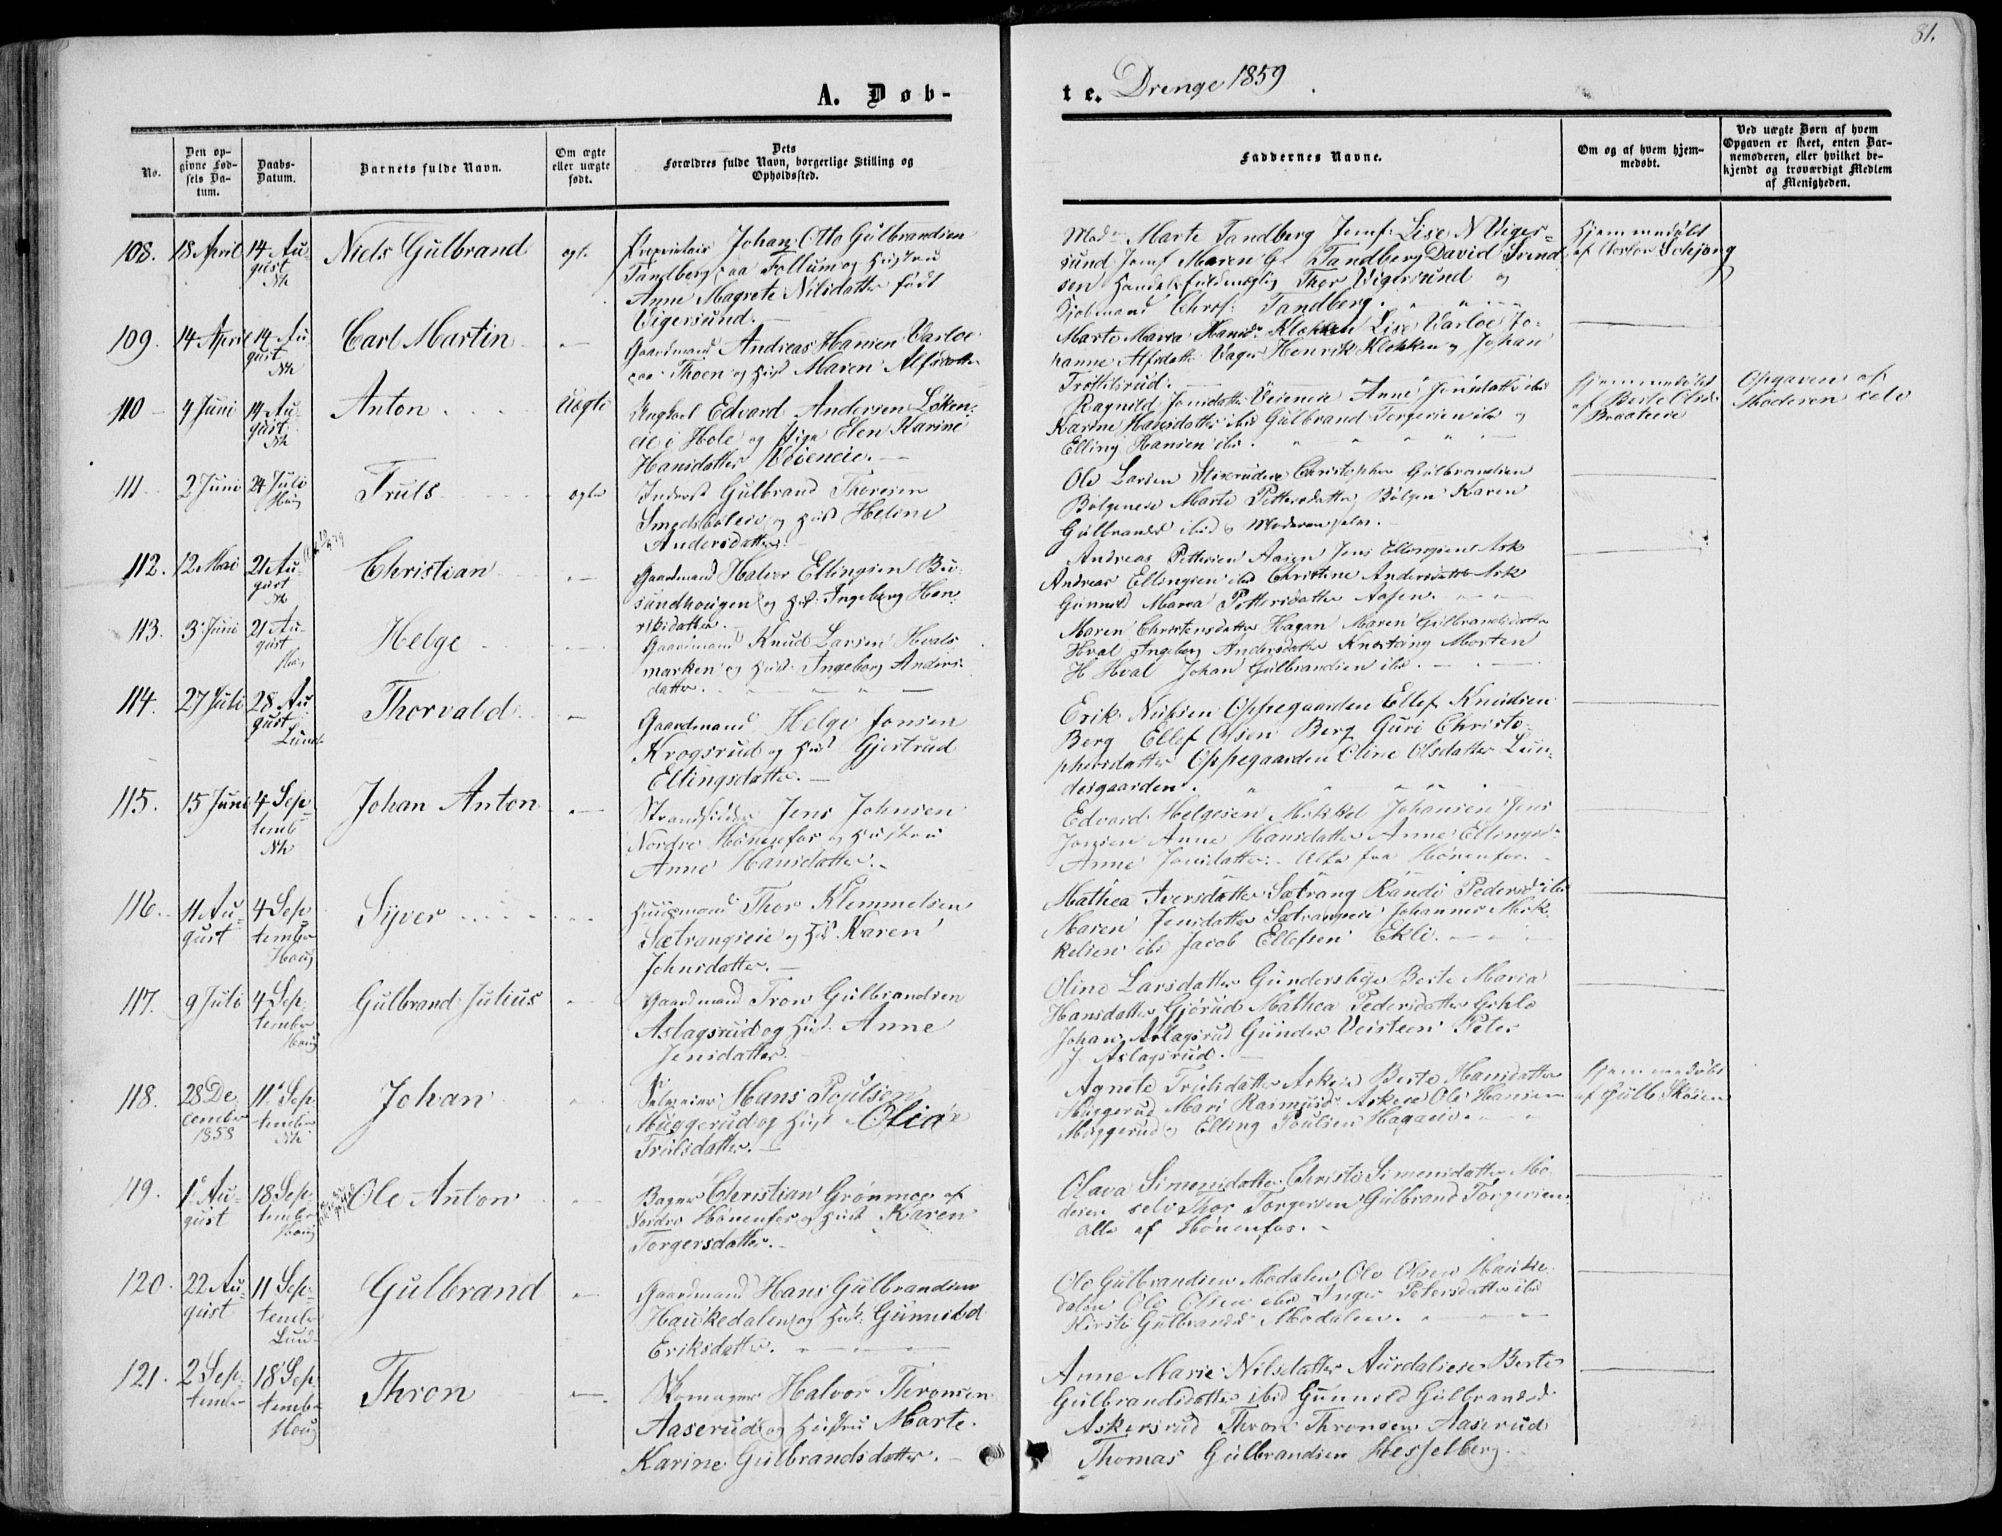 81.
A. Døb-
te. Drenge 1859
No.
Den op-
givne Fød-
sels Da-
tum.
Daabs-
Datum.
Barnets fulde Navn.
Om ægte
eller uægte
født.
Dets
Forældres fulde Navn, borgerlige Stilling og
Opholdssted.
Faddernes Navne.
Om og af hvem hjem-
medøbt.
Ved uægte Børn af hvem
Opgaven er skeet, enten Bar-
nemoderen, eller hvilket be-
kjendt og troværdigt Medlem
af Menigheden.
108. 18 April 14 Au-
gust
Nh
Niels Gulbrand
ægte
Proprietair Johan Otto Gulbrandsen
Tandberg paa Follum og Hustru
Anne Magrete Nilsdatter født
Vigersund.
Mad. Marte Tandberg Jomf: Lise N Viger-
sund Jomf Maren G. Tandberg David Svend
sen Handelsfuldmægtig Thor Vigersund og
Chrs: Tandberg.
Hjemmedøbt
af Doctor Schjøng
109. 14 April 14 Au-
gust
Nh
Carl Martin
Gaardmand Andreas Hansen Varloe
paa Thoen og Hust Maren Alfsdatter
Marte Maria Hansd. Klækken Lise Varloe Jo-
hanne Alfsdatter Vager Henrik Klækken og Johan
110 4 Juni 14 Au-
gust
Nh
Anton
Uægte
Ungkarl Edvard Andersen Løken-
eie i Hole og Pige Elen Karine
Hansdatter Veieneie.
Ragnild Jonsdatter Veieneie Anne Jensdatter ibd
Karine Hansdatter ibd Gulbrand Torgersen ibd og
Elling Hansen ibd.
Hjemmedøbt
af Berte Olsd.
Braateeie
Opgaven af
Moderen selv
111 2 Juni 24 Juli
Haug
Truls
ægte
Inderst Gulbrand Thoresen
Smedsbøleie og Hust Helene
Andersdatter.
Ole Larsen Christopher Gulbrandsen
Marte Pettersdatter Karen
Gulbrandsd ibid og Moderen selv.
112. 12 Mai 21 Au-
gust
Nh
Christian
Gaardmand Halvor Ellingsen Bu-
sundhougen og Hust: Ingeborg Hen-
riksdatter.
Andreas Pettersen Aasen Jens Ellingsen Ask
Andreas Ellingsen ibd Christine Andersdatter Ask
Gunnild Maria Pettersdatter Aasen.
113. 3 Juni 21 Au-
gust
Haug
Helge
Gaardmand Knud Larsen Hvals-
marken og Hust. Ingeborg Anders-
datter.
Maren Christensdatter Hagan Maren Gulbrandsdatter
Hval Ingeborg Andersdatter Knestang Morten
H Hval Johan Gulbrandsen ibd.
114. 27 Juli 28 Au-
gust
Lund
Thorvald
Gaardmand Helge Jonsen
Krogsrud og Hust Gjertrud
Ellingsdatter.
Erik Nielsen Oppegaarden Ellef Knudsen
Berg Ellef Olsen Berg Guri Christo-
phersdatter Oppegaarden Oline Olsdatter Lun-
desgaarden.
115. 15 Juni 4 Sep-
temb
Nh
Johan Anton
Strandsidder Jens Johnsen
Nordre Hønenfos og Hustru
Anne Hansdatter.
Edvard Helgesen Mikkel Johansen Jens
Jonsen Anne Hansdatter Anne Ellingsd.
Anne Jonsdatter. Alle fra Hønenfos.
116. 11 Au-
gust
4 Sep-
tember
Haug
Syver
Huusmand Thor Klemmetsen
Sætrangseie og Hst. Karen
Johnsdatter.
Mathea Iversdatter Sætrang Randi Pedersd ibd
Maren Jensdatter Sætrangseie Johannes Mik-
kelsen ibd Jacob Ellefsen Ekli.
117. 9 Juli 4 Sep-
tember
Haug
Gulbrand Julius
Gaardmand Tron Gulbrandsen
Aslagsrud og Hust. Anne
Jensdatter.
Oline Larsdatter Gundersbye Berte Maria
Hansdatter Gjørud Mathea Pedersdatter
Johan Aslagsrud Gunder Veisteen Peter
J. Aslagsrud.
118. 28 De-
cember
1858
11 Sep-
tember
Nh
Johan
Selveier Hans Poulsen
Muggerud og Hust Olia
Trulsdatter.
Agnete Trulsdatter Askeie Berte Hansdatter
Muggerud Mari Rasmusd. Askeie Ole Hansen
Muggerud og Elling Poulsen Hagaeie.
Hjemmedøbt
af Gulb: Skøien
119. 1 Au-
gust
18 Sep-
tember
Haug
Ole Anton
Bager Christian Grønmoe af
Nordre Hønenfos og Hust Karen
Torgersdatter.
Olava Simensdatter Christi Simensdatter Mo-
deren selv Thor Torgersen Gulbrand Torgersen
Alle af Hønenfos.
120. 22 Au-
gust
11 Sep-
tember
Lund
Gulbrand
Gaardmand Hans Gulbrandsen
Haukedalen og Hust: Gunnild
Eriksdatter.
Ole Gulbrandsen Modalen Ole Olsen Hauke-
dalen Ole Olsen ibd Inger Petersdatter ibd
Kirsti Gulbrandsd. Modalen.
121. 2 Sep-
tember
18 Sep-
tember
Haug
Thron
Halvor Thronsen
Aaserud og Hustru Marte
Karine Gulbrandsdatter.
Anne Marie Nilsdatter Aurdalseie Berte
Gulbrandsdatter ibid Gunnild Gulbrandsd
Askersrud Thron Thronsen Aaserud
Thomas Gulbrandsen Hesselberg.